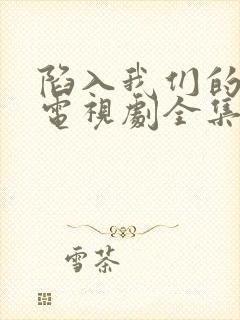 陷入我们的
電視劇全集
雪茶